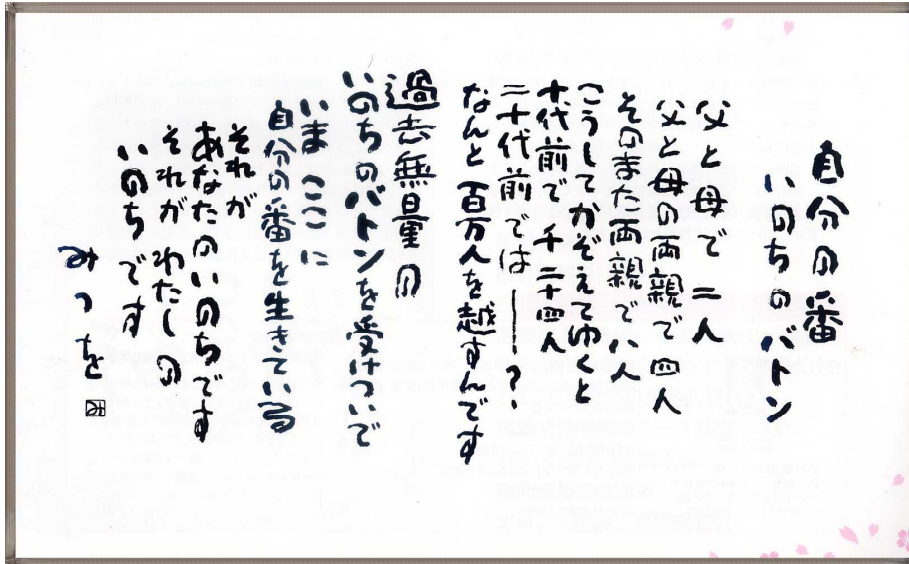 自分の番
いのちのバトン
父と母で二人
父と母の両親で四人
そのまた両親で八人
こうしてかぞえてゆくと
十代前で千二十四人
二十代前では――?
なんと百万人を越すんです
過去無量の
いのちのバトンを受けついで
いまここに
自分の番を生きている
それが
あなたのいのちです
それがわたしの
いのちです
みつを
み